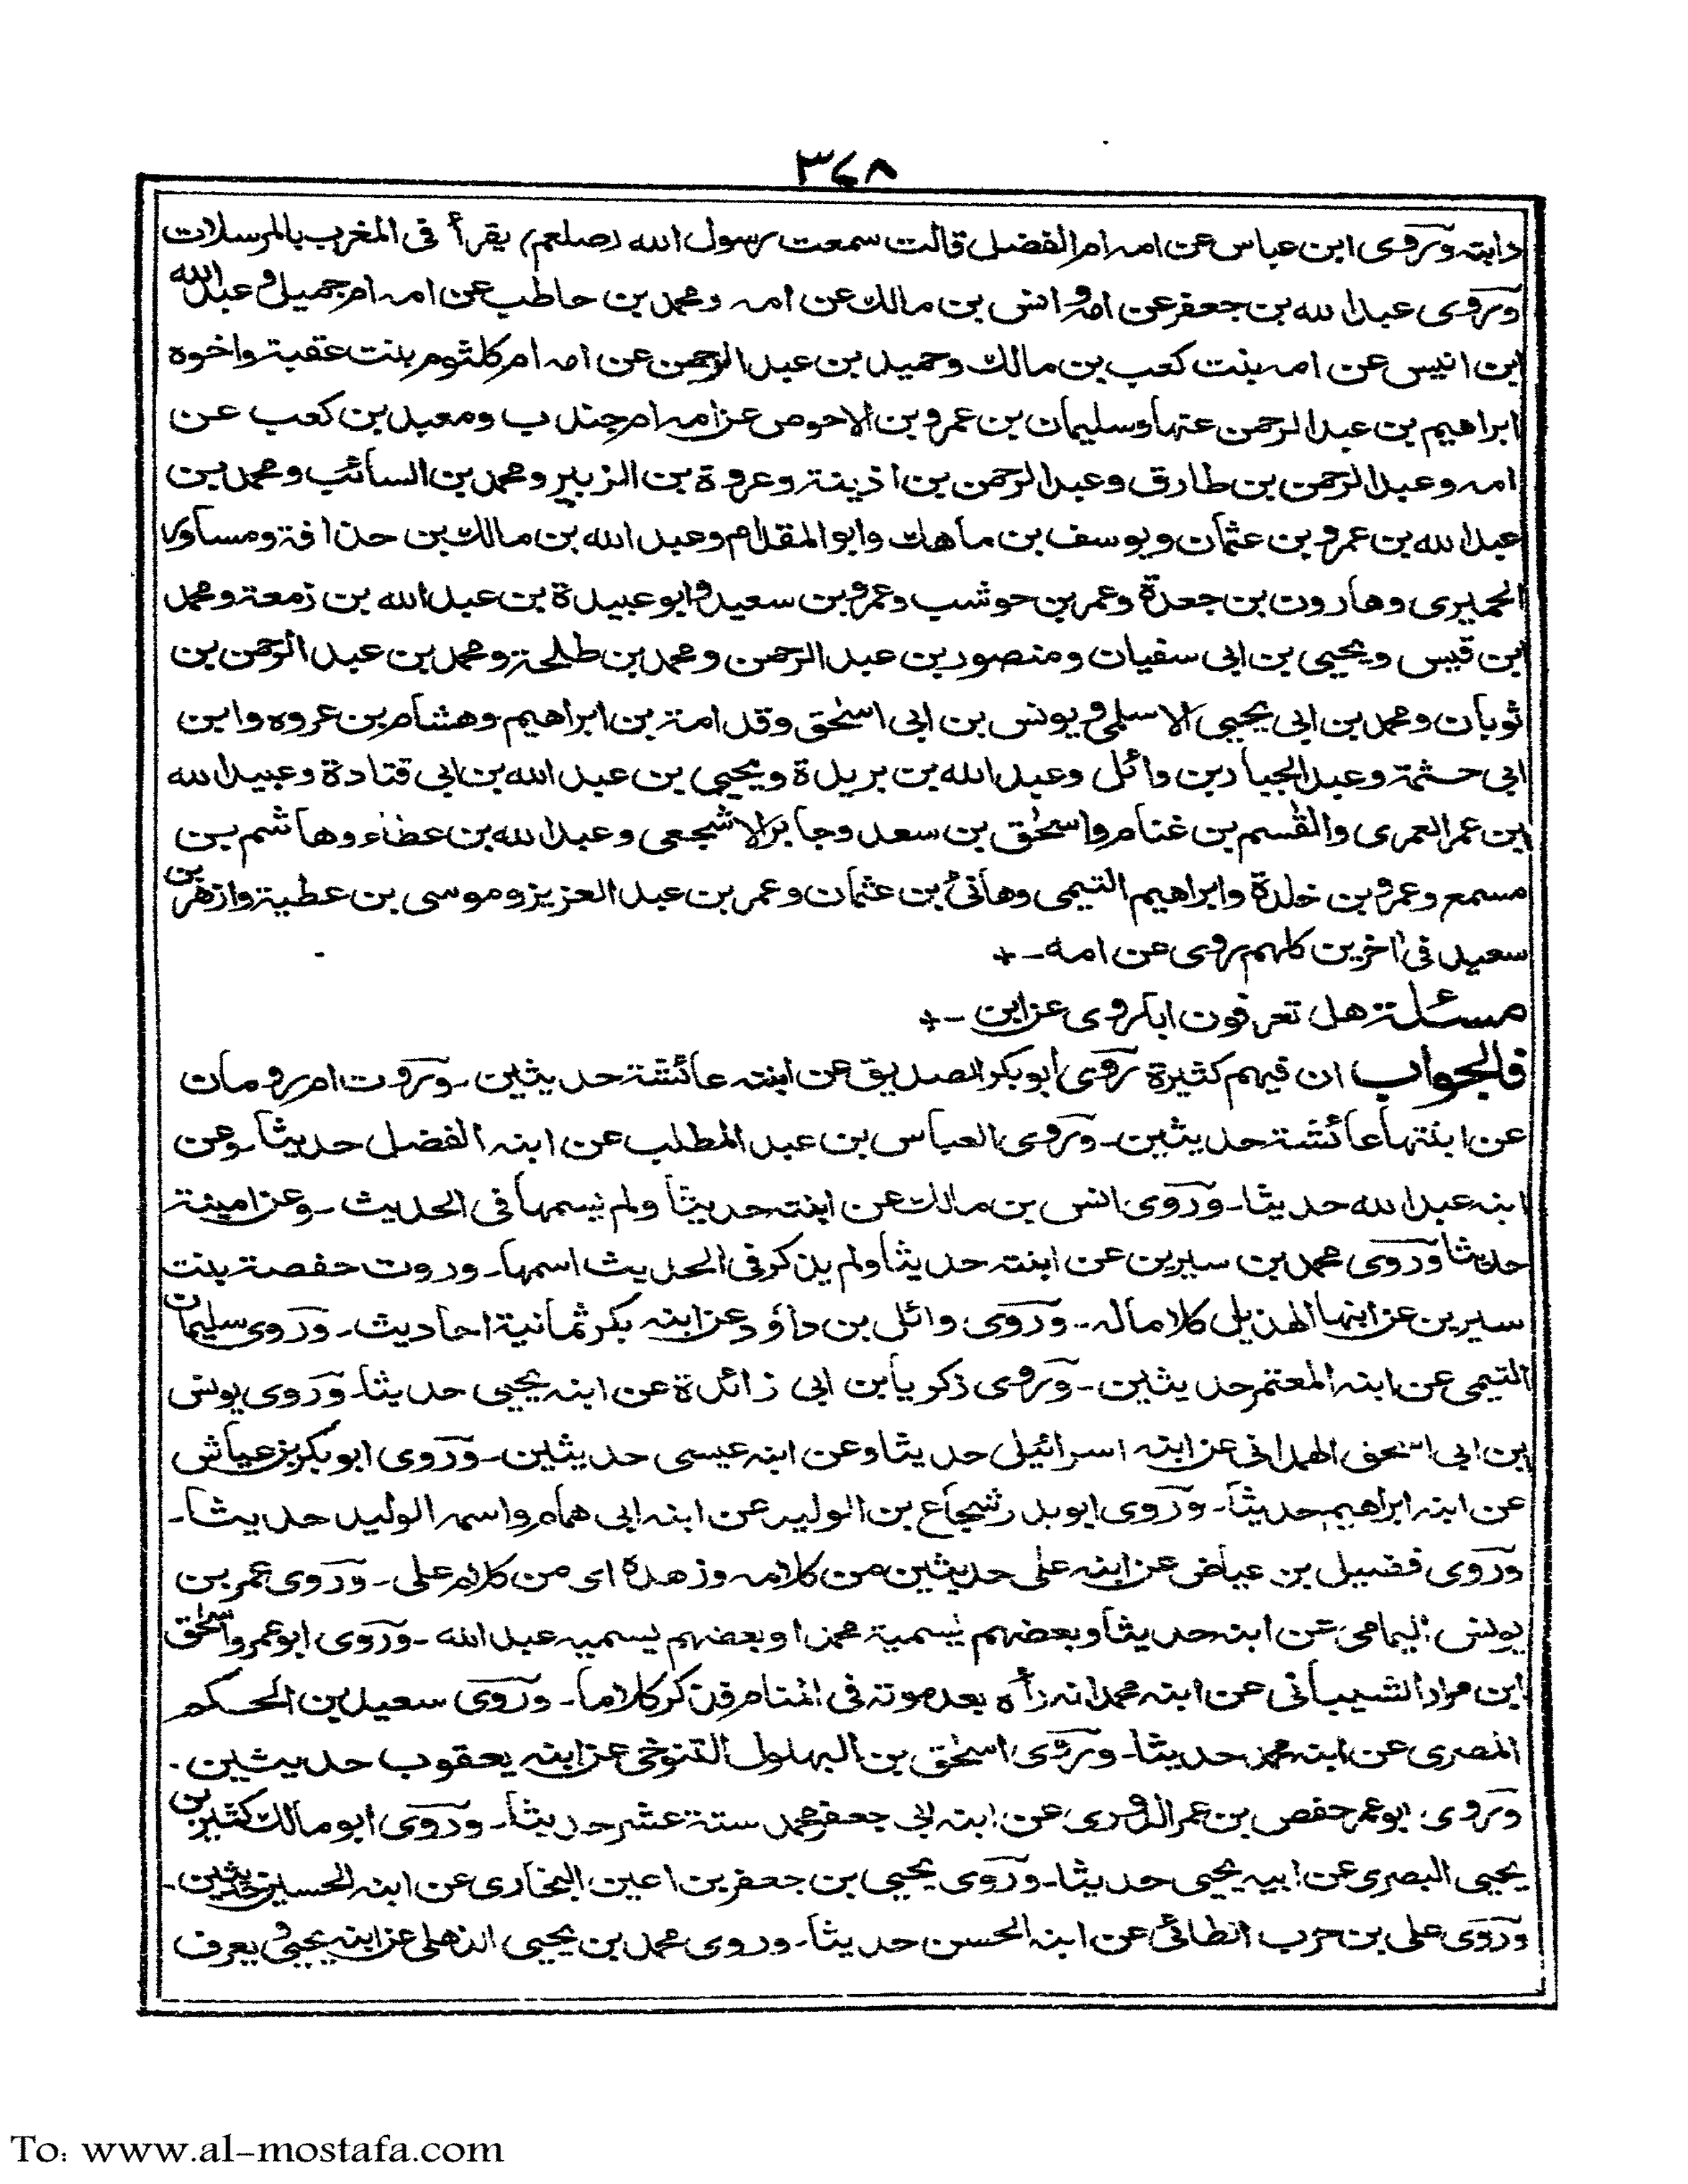 ٣٤٨
دابته وروى ابن عباس عن امه ام الفضل قالت سمعت رسول الله (صلعم) يقرأ فى المغرب بالمرسلات
وروى عبد الله بن جعفر عن امه وانس بن مالك عن امه ومحمد بن حاطب عن امه ام جميل وعبد الله
ابن انيس عن امه بنت كعب بن مالك وحميد بن عبد الرحمن عن امه ام كلثوم بنت عقبة واخوه
ابراهيم بن عبد الرحمن عنها وسليمان بن عمرو بن الاحوص عن امه ام جندب ومعبد بن كعب عن
امه وعبد الرحمن بن طارق وعبد الرحمن بن اذينة وعروة بن الزبير ومحمد بن السائب ومحمد بن
عبد الله بن عمرو بن عثمان ويوسف بن ماهك وابو المقدام وعبد الله بن مالك بن حذافة ومساور
الحميرى وهارون بن جعدة وعمر بن حوشب وعمرو بن سعيد وابو عبيدة بن عبد الله بن زمعة ومحمد
ابن قيس ويحيى بن ابى سفيان ومنصور بن عبد الرحمن ومحمد بن طلحة ومحمد بن عبد الرحمن بن
ثوبان ومحمد بن ابى يحيى الاسلمى ويونس بن ابى اسحق وقدامة بن ابراهيم وهشام بن عروه وابن
ابى حثمة وعبد الجبار بن وائل وعبد الله بن بريدة ويحيى بن عبد الله بن ابى قتادة وعبيد الله
ابن عمر العمرى والقسم بن غنام واسحق بن سعد وجابر الاشجعى وعبد الله بن عطاء وهاشم بن
مسمع وعمرو بن خلدة وابراهيم التيمى وهانئ بن عثمان وعمر بن عبد العزيز وموسى بن عطية وازهر بن
سعيد فى اخرين كلهم روى عن امه -+
مسئلة هل تعرفون ابا روى عن ابن -+
فالجواب ان فيهم كثيرة روى ابو بكر الصديق عن ابنته عائشة حديثين - وروت ام رومان
عن ابنتها عائشة حديثين - وروى العباس بن عبد المطلب عن ابنه الفضل حديثا - وعن
ابنه عبد الله حديثا - وروى انس بن مالك عن ابنته حديثا ولم يسمها فى الحديث - وعن امينة
حديثا وروى محمد بن سيرين عن ابنته حديثا ولم يذكر فى الحديث اسمها - وروت حفصة بنت
سيرين عن ابنها الهذيلى كلاما له - وروى وائل بن داؤد عن ابنه بكر ثمانية احاديث - وروى سليمان
التيمى عن ابنه المعتمر حديثين - وروى ذكريا بن ابى زائدة عن ابنه يحيى حديثا - وروى يونس
بن ابى اسحق الهمدانى عن ابنه اسرائيلى حديثا وعن ابنه عيسى حديثين - وروى ابو بكر بن عياش
عن ابنه ابراهيم حديثا - وروى ابو بدر شجاع بن الوليد عن ابنه ابى همام واسمه الوليد حديثا -
وروى فضيل بن عياض عن ابنه على حديثين من كلامه وزهده اى من كلام على - وروى عمر بن
يونس اليمامى عن ابنه حديثا وبعضهم يسميه محمدا وبعضهم يسميه عبد الله - وروى ابو عمرو اسحق
ابن مراد الشيبانى عن ابنه محمد انه رأه بعد موته فى المنام فذكر كلاما - وروى سعيد بن الحكم
المصرى عن ابنه محمد حديثا - وروى اسحق بن البهلول التنوخى عن ابنه يعقوب حديثين .
وروى ابو عمر حفص بن عمر الدورى عن ابنه ابى جعفر محمد ستة عشر حديثا - وروى ابو مالك كثير بن
يحيى البصرى عن ابيه يحيى حديثا - وروى يحيى بن جعفر بن اعين البخارى عن ابنه الحسين حديثين -
وروى على بن حرب الطائى عن ابنه الحسن حديثا - وروى محمد بن يحيى الذهلى عن ابنه يحيى ويعرف
To: www.al-mostafa.com